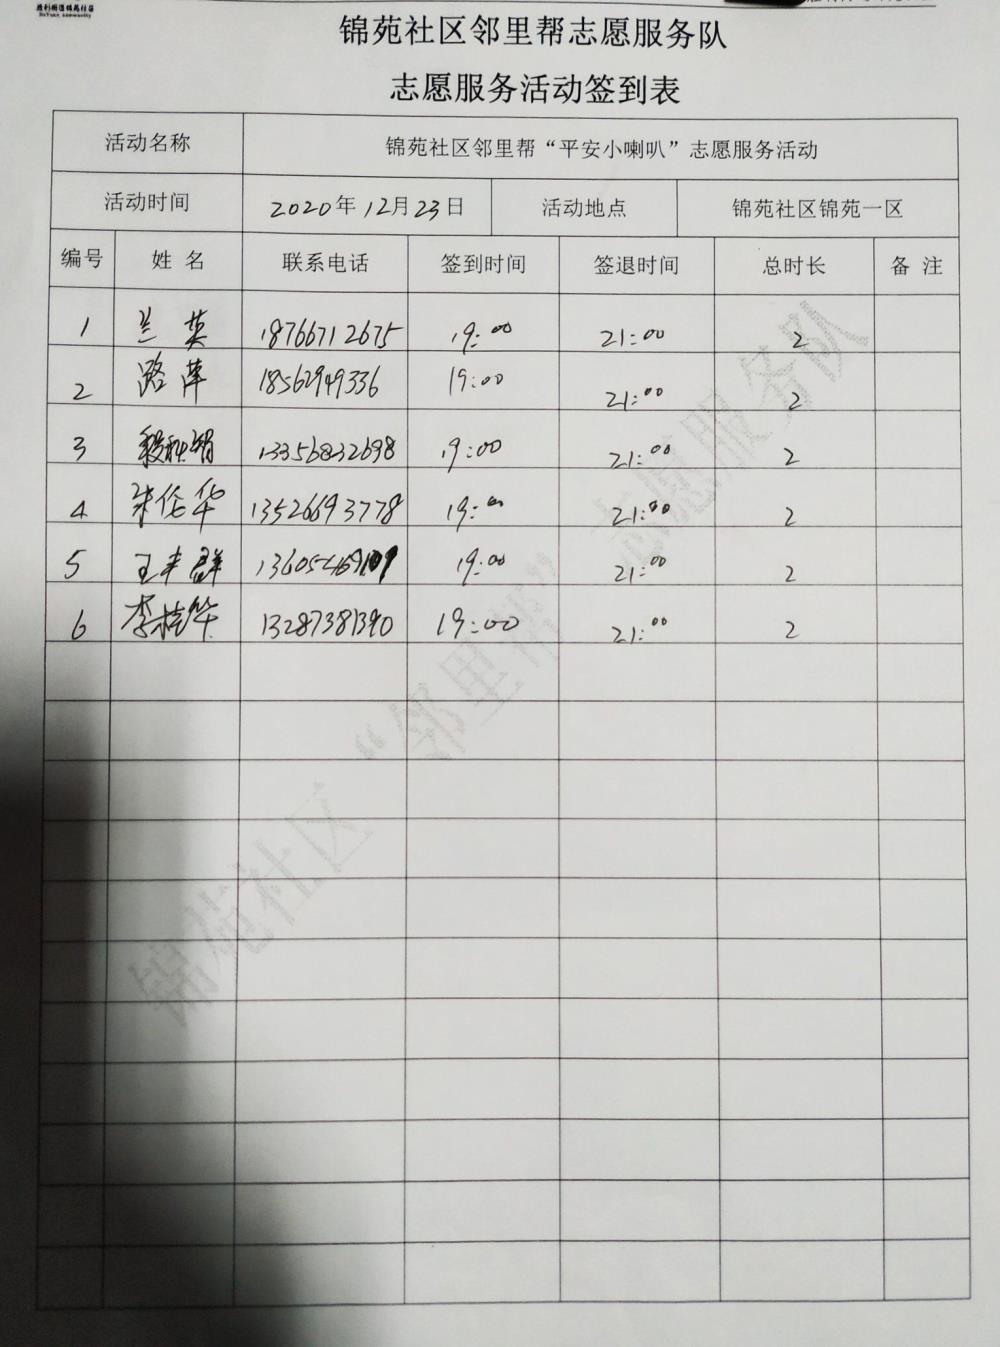 锦苑社区邻里帮志愿服务队
志愿服务活动签到表
活动名称 锦苑社区邻里帮“平安小喇叭”志愿服务活动
活动时间 2020年12月23日 活动地点 锦苑社区锦苑一区
编号 姓 名 联系电话 签到时间 签退时间 总时长 备 注
1 兰英 18766712675 19:00 21:00 2
2 路萍 18562949336 19:00 21:00 2
3 13356832698 19:00 21:00 2
4 朱伦华 13526693778 19:00 21:00 2
5 王丰群 19:00 21:00 2
6 李桂华 13287381390 19:00 21:00 2
锦苑社区“邻里帮”志愿服务队